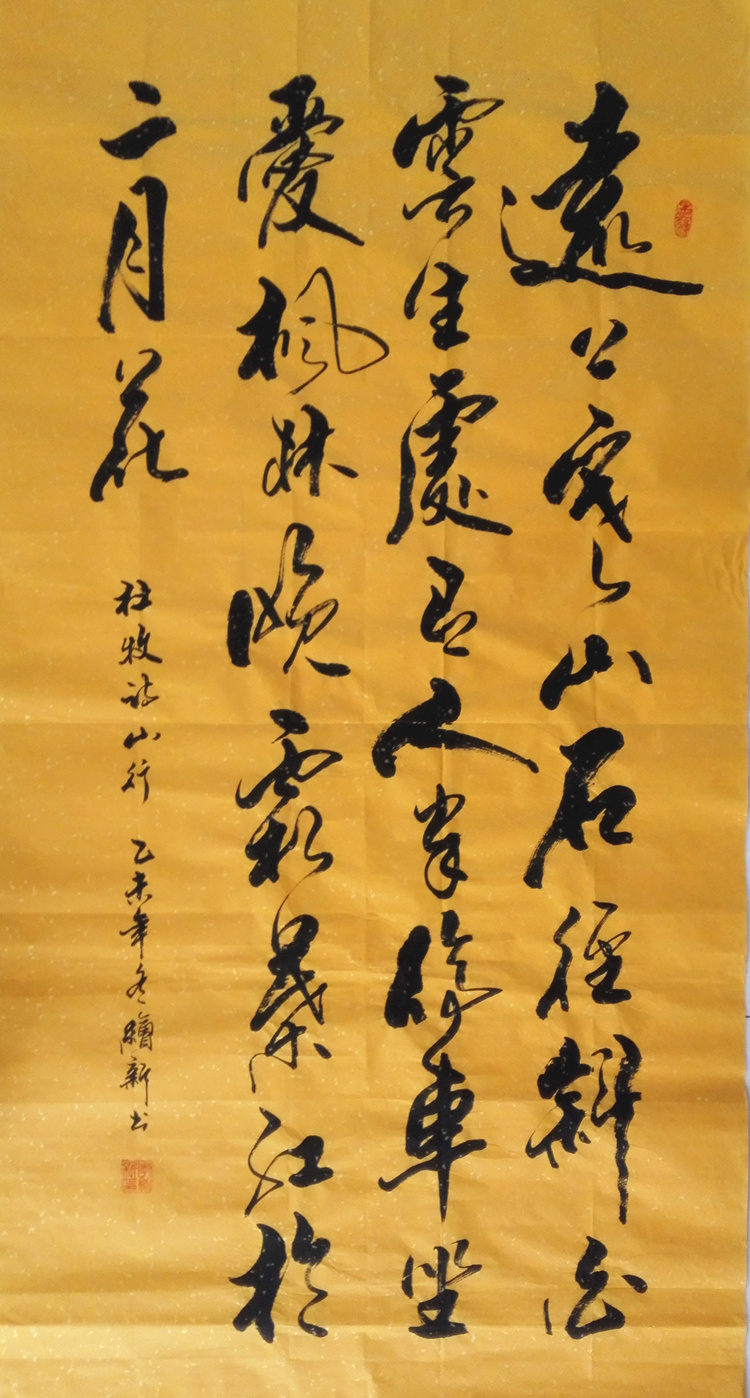 遠上寒山石徑斜白
雲生處有人家停車坐
愛楓林晚霜葉紅於
二月花
杜牧詩山行 乙未年冬 新书